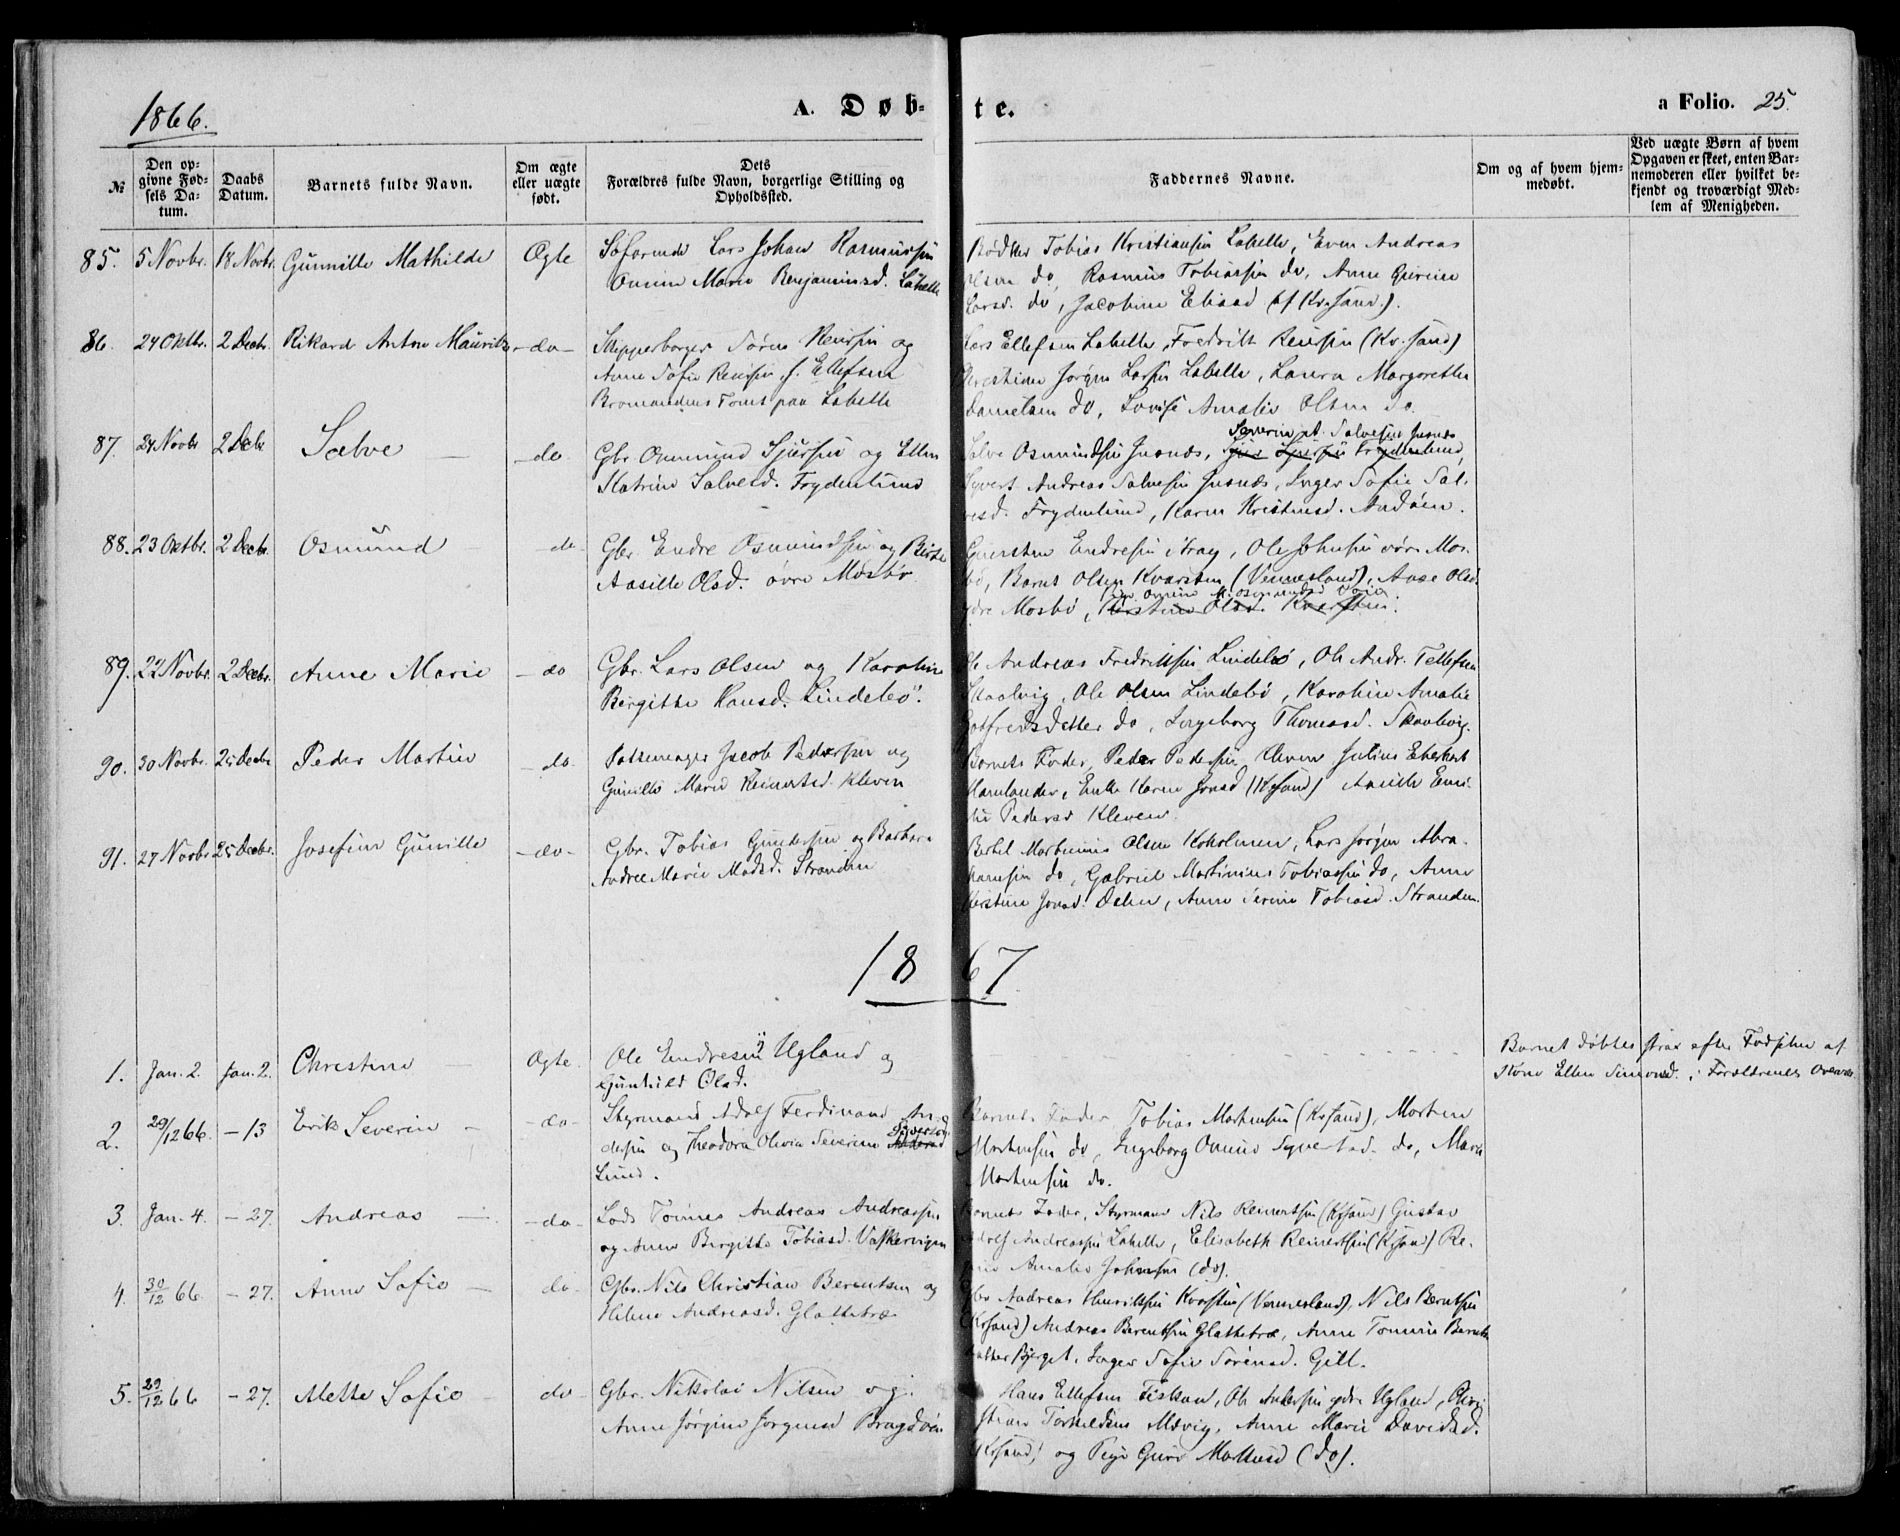 1866.
A. Døb-
te.
a Folio. 25.
No
Den op-
givne Fød-
sels Da-
tum.
Daabs
Datum.
Barnets fulde Navn.
Om ægte
eller uægte
født.
Dets
Forældres fulde Navn, borgerlige Stilling og
Opholdssted.
Faddernes Navne.
Om og af hvem hjem-
medøbt.
Ved uægte Børn af hvem
Opgaven er skeet, enten Bar-
nemoderen eller hvilket be-
kjendt og troværdigt Med-
lem af Menigheden.
85. 5 Novbr. 18 Novbr. Gunnille Mathilde Ægte
Lars Johan Rasmussen
Marie Benjaminsd. Lahelle
Bødker Tobias Kristiansen Lahelle, Even Andreas
Olsen do, Rasmus Tobiassen do, Anne
Larsd. do, Jacobine Eliasd (af Kr.sand.).
86. 24 Oktbr. 2 Decbr. Rikard Anton Mauritz - do -
Skipperborger Sören Reiersen og
Anne Sofie Reiersen, f. Ellefsen
Tomt paa Lahelle
Lars Ellefsen Lahelle, Fredrik Reiersen (Kr.sand)
Jörgen Larsen Lahelle, Laura Margrethe
Danielsen do, Lovise Amalie Olsen do.
87. 24 Novbr 2 Decbr. Salve - do
Gbr. Osmund Sjursen og Ellen
Katrine Salvesd. Frydenlund
Severin A. Salvesen Jusnes
Salve Osmundsen Jusnæs, Frydenlund,
Syvert Andreas Salvesen Jusnæs, Inger Sofie Sal-
vesd. Frydenlund, Karen Kristensd. Andøen.
88. 23 Oktbr. 2 Decbr. Osmund - do
Gbr. Endre Osmundsen og Birte
Aasille Olsd. øvre Mosbö
Endresen Aray, Ole Johnsen øvre Mos-
bö, Bernt Olsen Kvarsten (Vennesland), Aase Olsd.
ydre Mosbö, Olsd. Kvarsten.
89. 22 Novbr. 2 Decbr. Anne Marie - do
Gbr. Lars Olsen og Karoline
Birgitte Hansd. Lindebö.
Ole Andreas Fredriksen Lindebö, Ole Andr. Tellefsen
Skaalvig, Ole Olsen Lindebö, Karoline Amalie
Gotfredsdatter do, Ingeborg Thomasd. Skaalevig.
90. 30 Novbr. 25 Decbr Peder Martin - do.
Pottemager Jacob Pedersen og
Gunille Marie Reinertsd. Kleven
Barnets Fader, Peder Pedersen Kleven Julius
Enke Karen Jonsd (Kr.sand) Emi-
lie Pedersd Kleven.
91. 27 Novbr 25 Decbr. Josefine Gunille - do -
Gbr. Tobias Gundersen og Barbara
Andrea Marie Madsd. Stranden
Bertel Martinius Olsen Kokolmen, Lars Jörgen Abra-
hamsen do, Gabriel Martinius Tobiassen do, Anne
Kirstine Jonsd. Dalen, Anne Serine Tobiasd. Stranden.
1867
1. Jan. 2. Jan. 2. Christine - Ægte
Ole Endresen Ugland og
Gunhild Olsd.
Barnet döbtes strax efter Fødselen af
Kone Ellen Simonsd. i Forældrenes
2. 29/12 66. - 13 Erik Severin - - do -
Styrmand Adolf Ferdinand An-
dersen og Theodora Olivia Severine Sivertsd.
Lund.
Barnets Fader Tobias Mortensen (Kr.sand), Morten
Mortensen do, Ingeborg do, Marie
Mortensen do.
3. Jan. 4. - 27. Andreas - - do -
Lods Tønnes Andreas Andreassen
og Anne Birgitte Tobiasd. Vaskervigen
Barnets Fader, Styrmand Nils Reinertsen (Kr.sand) Gustav
Adolf Andreassen Lahelle, Elisabeth Reinertsen (Kr.sand) Re-
Amalie Johnsen (do).
4. 30/12 66. - 27. Anne Sofie - do
Gbr. Nils Christian Berentsen og
Helene Andreasd. Glattetræ
Gbr Andreas Henriksen Kvarsten (Vennesland), Nils Berntsen
(Kr.sand) Andreas Berentsen Glattetræ, Anne Tomine Bernts-
datter Bjerget, Inger Sofie Sörensd. Gill.
5. 29/12 66 - 27. Mette Sofie - do
Gbr. Nikolai Nilsen og
Anne Jörgine Jörgensd Bragdöen
Hans Ellefsen Fiskaa, Ole ydre Ugland, Chri-
stian Torkildsen Mævig, Anne Marie Davidsd.
(Kr.sand) og Pige Guro (do).